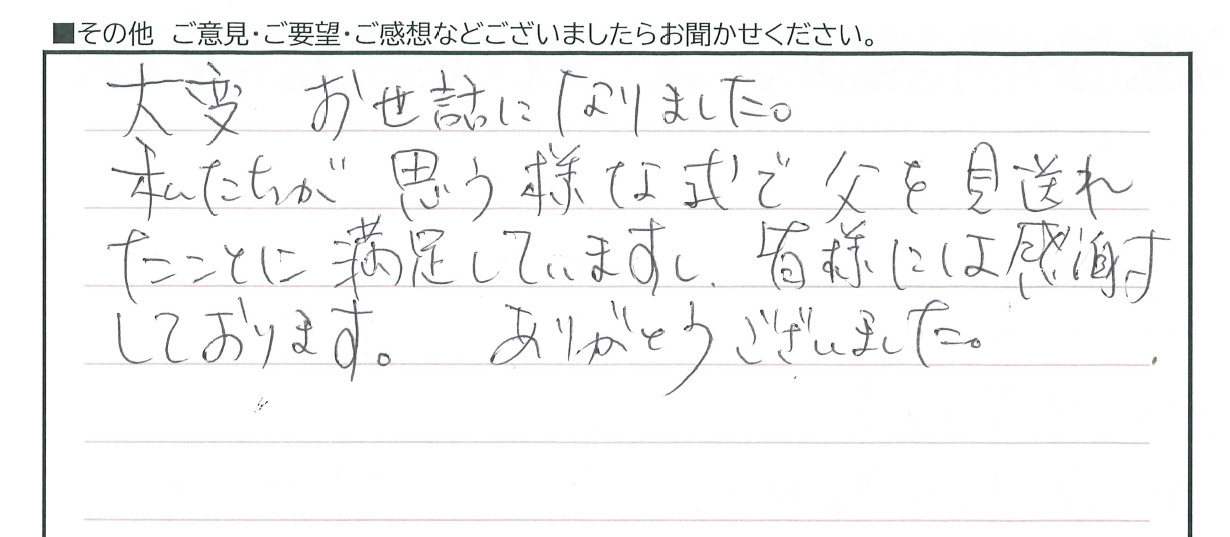 ■その他 ご意見・ご要望・ご感想などございましたらお聞かせください。
大変 お世話になりました。
私たちが思う様な式で父を見送れ
たことに満足していますし、皆様には感謝
しております。 ありがとうございました。